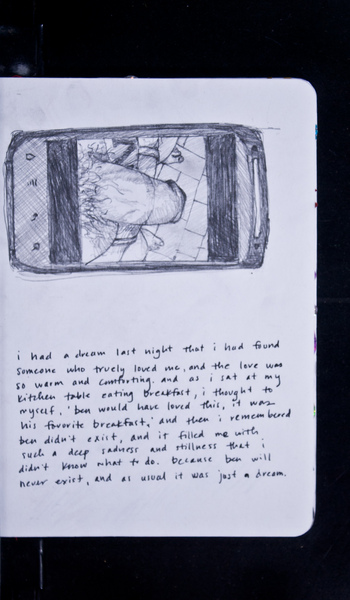 i had a dream last night that i had found
someone who truely loved me, and the love was
so warm and comforting. and as i sat at my
kitchen table eating breakfast, i thought to
myself, 'ben would have loved this, it was
his favorite breakfast,' and then i remembered
ben didn't exist, and it filled me with
such a deep sadness and stillness that i
didn't know what to do. because ben will
never exist, and as usual it was just a dream.